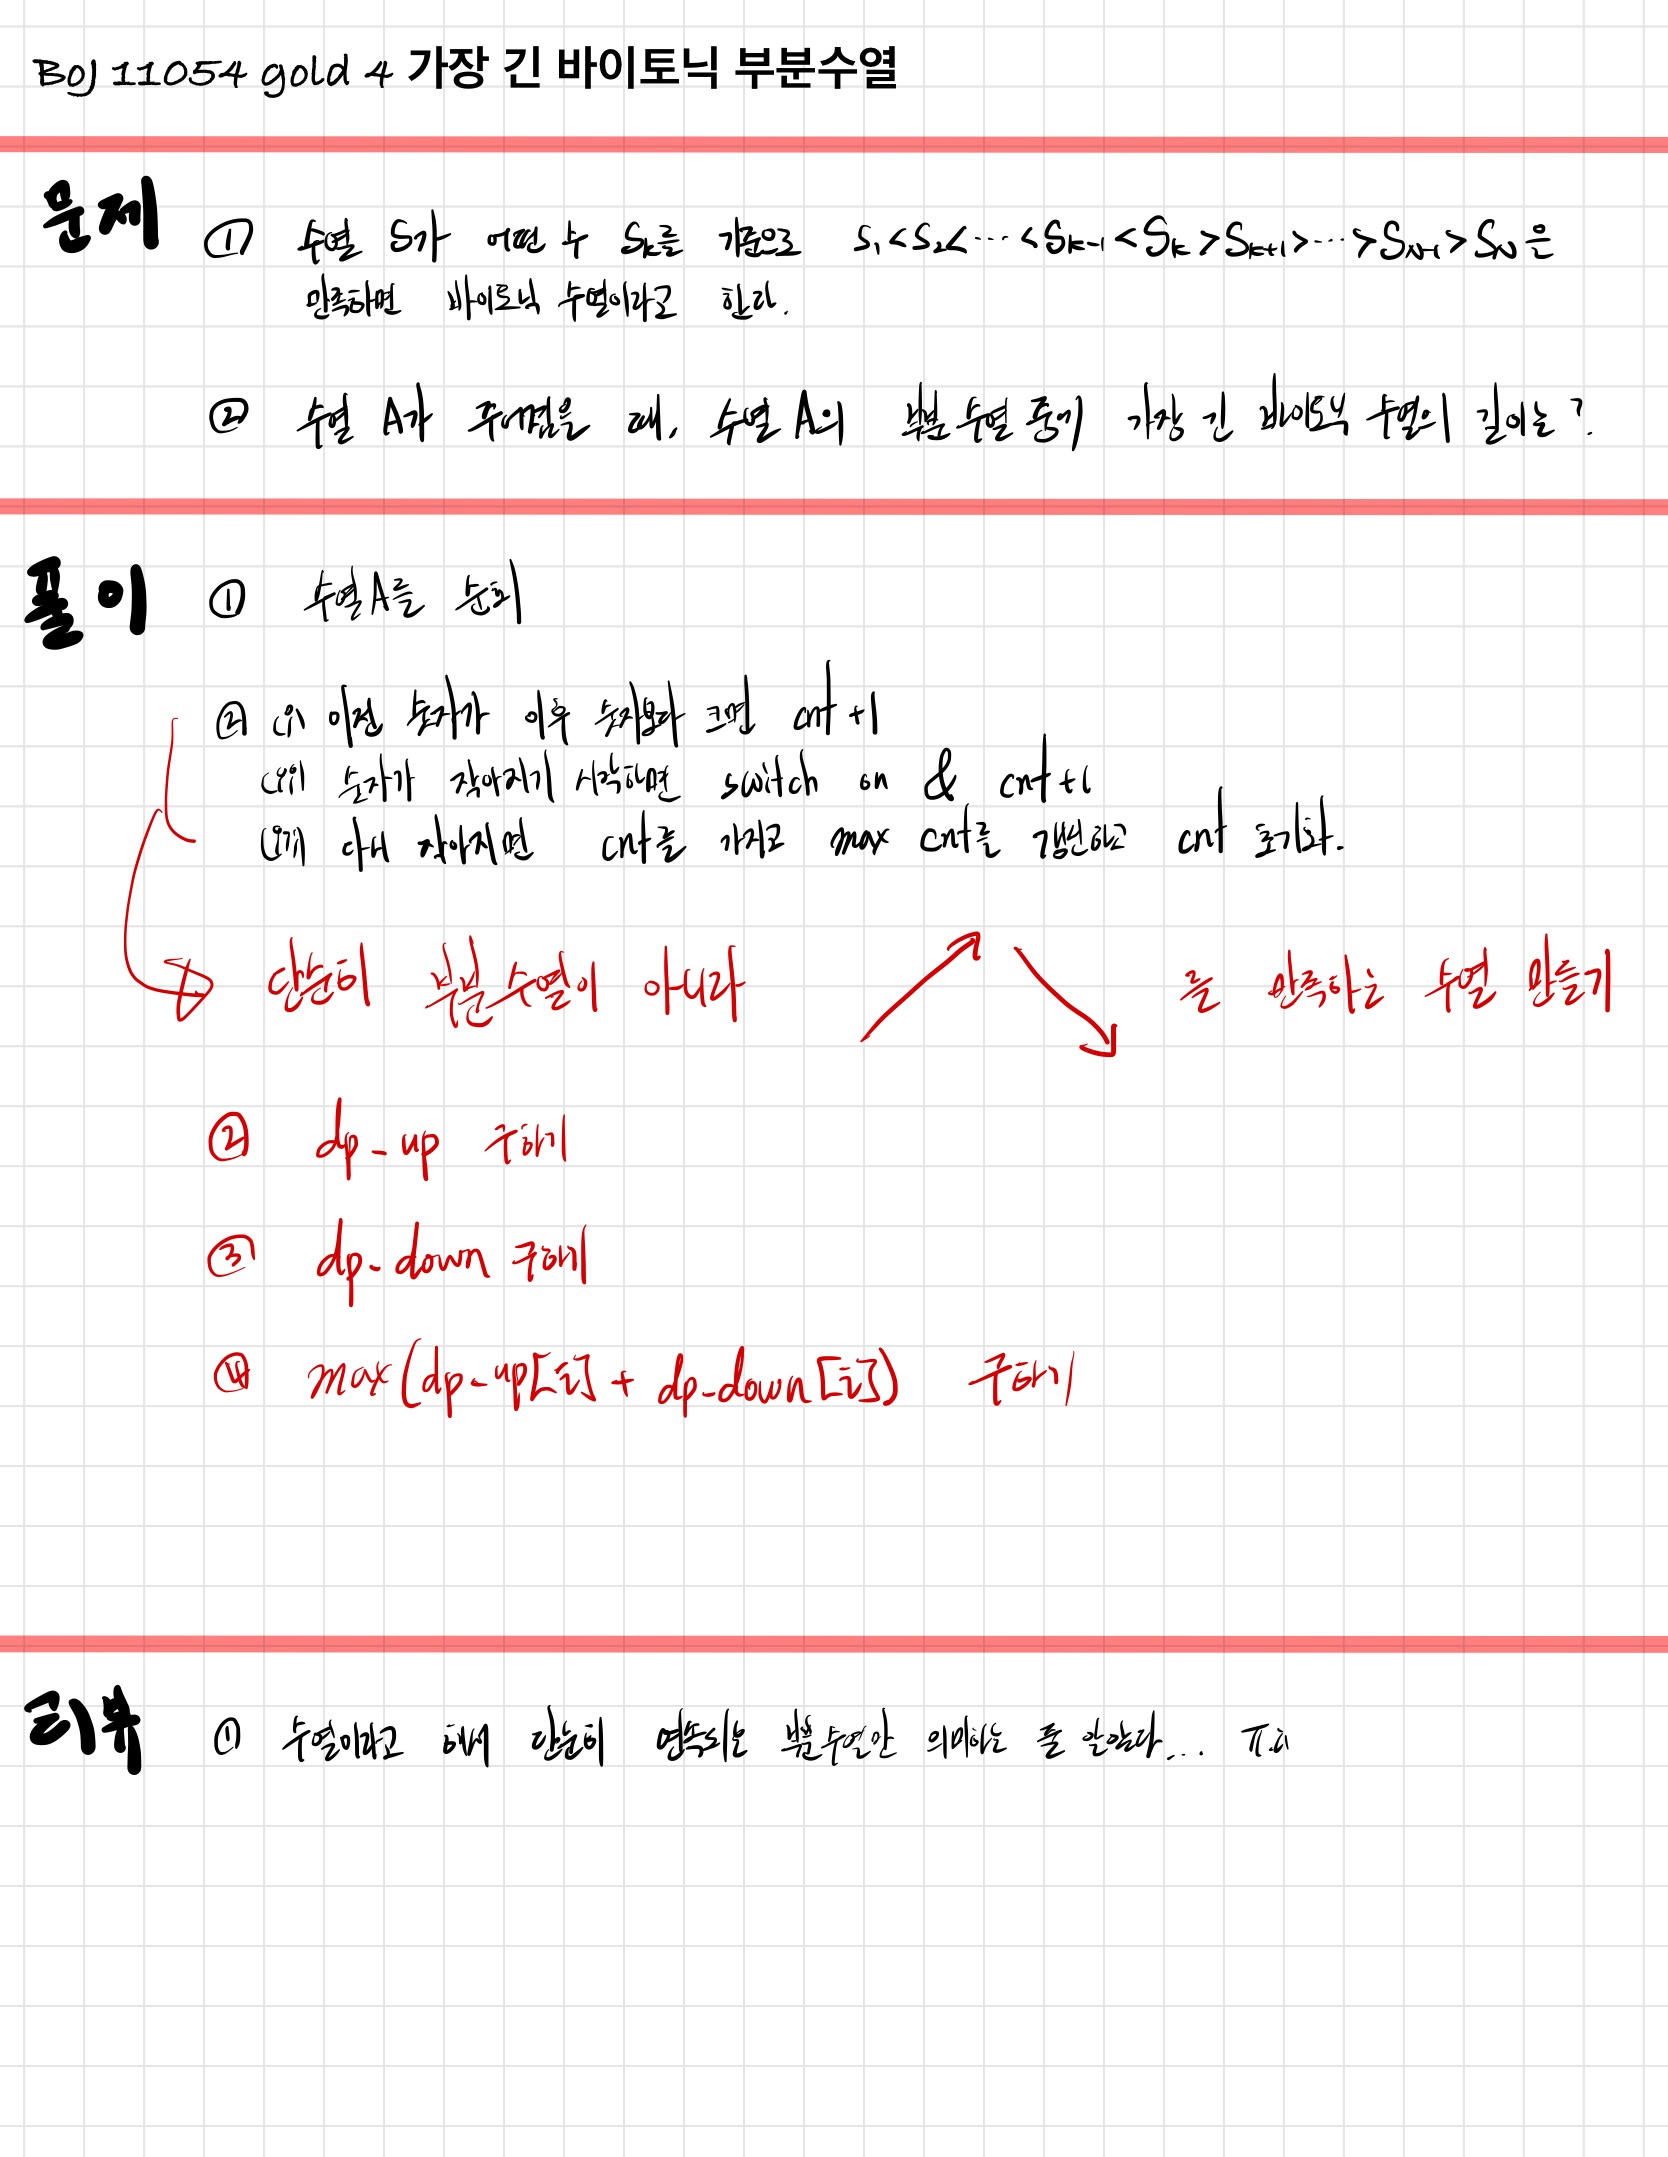 BOJ 11054 gold 4 가장 긴 바이토닉 부분수열
문제
① 수열 S가 어떤 수 Sk를 기준으로 S1 < S2 < ... < Sk-1 < Sk > Sk+1 > ... > SN-1 > SN 을
만족하면 바이토닉 수열이라고 한다.
② 수열 A가 주어졌을 때, 수열 A의 부분 수열 중 가장 긴 바이토닉 수열의 길이는?
풀이
① 수열 A를 순회
② (i) 이전 숫자가 이후 숫자보다 크면 cnt +1
(ii) 숫자가 작아지기 시작하면 switch on & cnt +1
(iii) 다시 작아지면 cnt를 가지고 max cnt를 갱신하고 cnt 초기화.
단순히 부분수열이 아니라 를 만족하는 수열 만들기
② dp_up 구하기
③ dp_down 구하기
④ max(dp_up[i] + dp_down[i]) 구하기
리뷰
① 수열이라고 해서 단순히 연속되는 부분수열만 의미하는 줄 알았다...